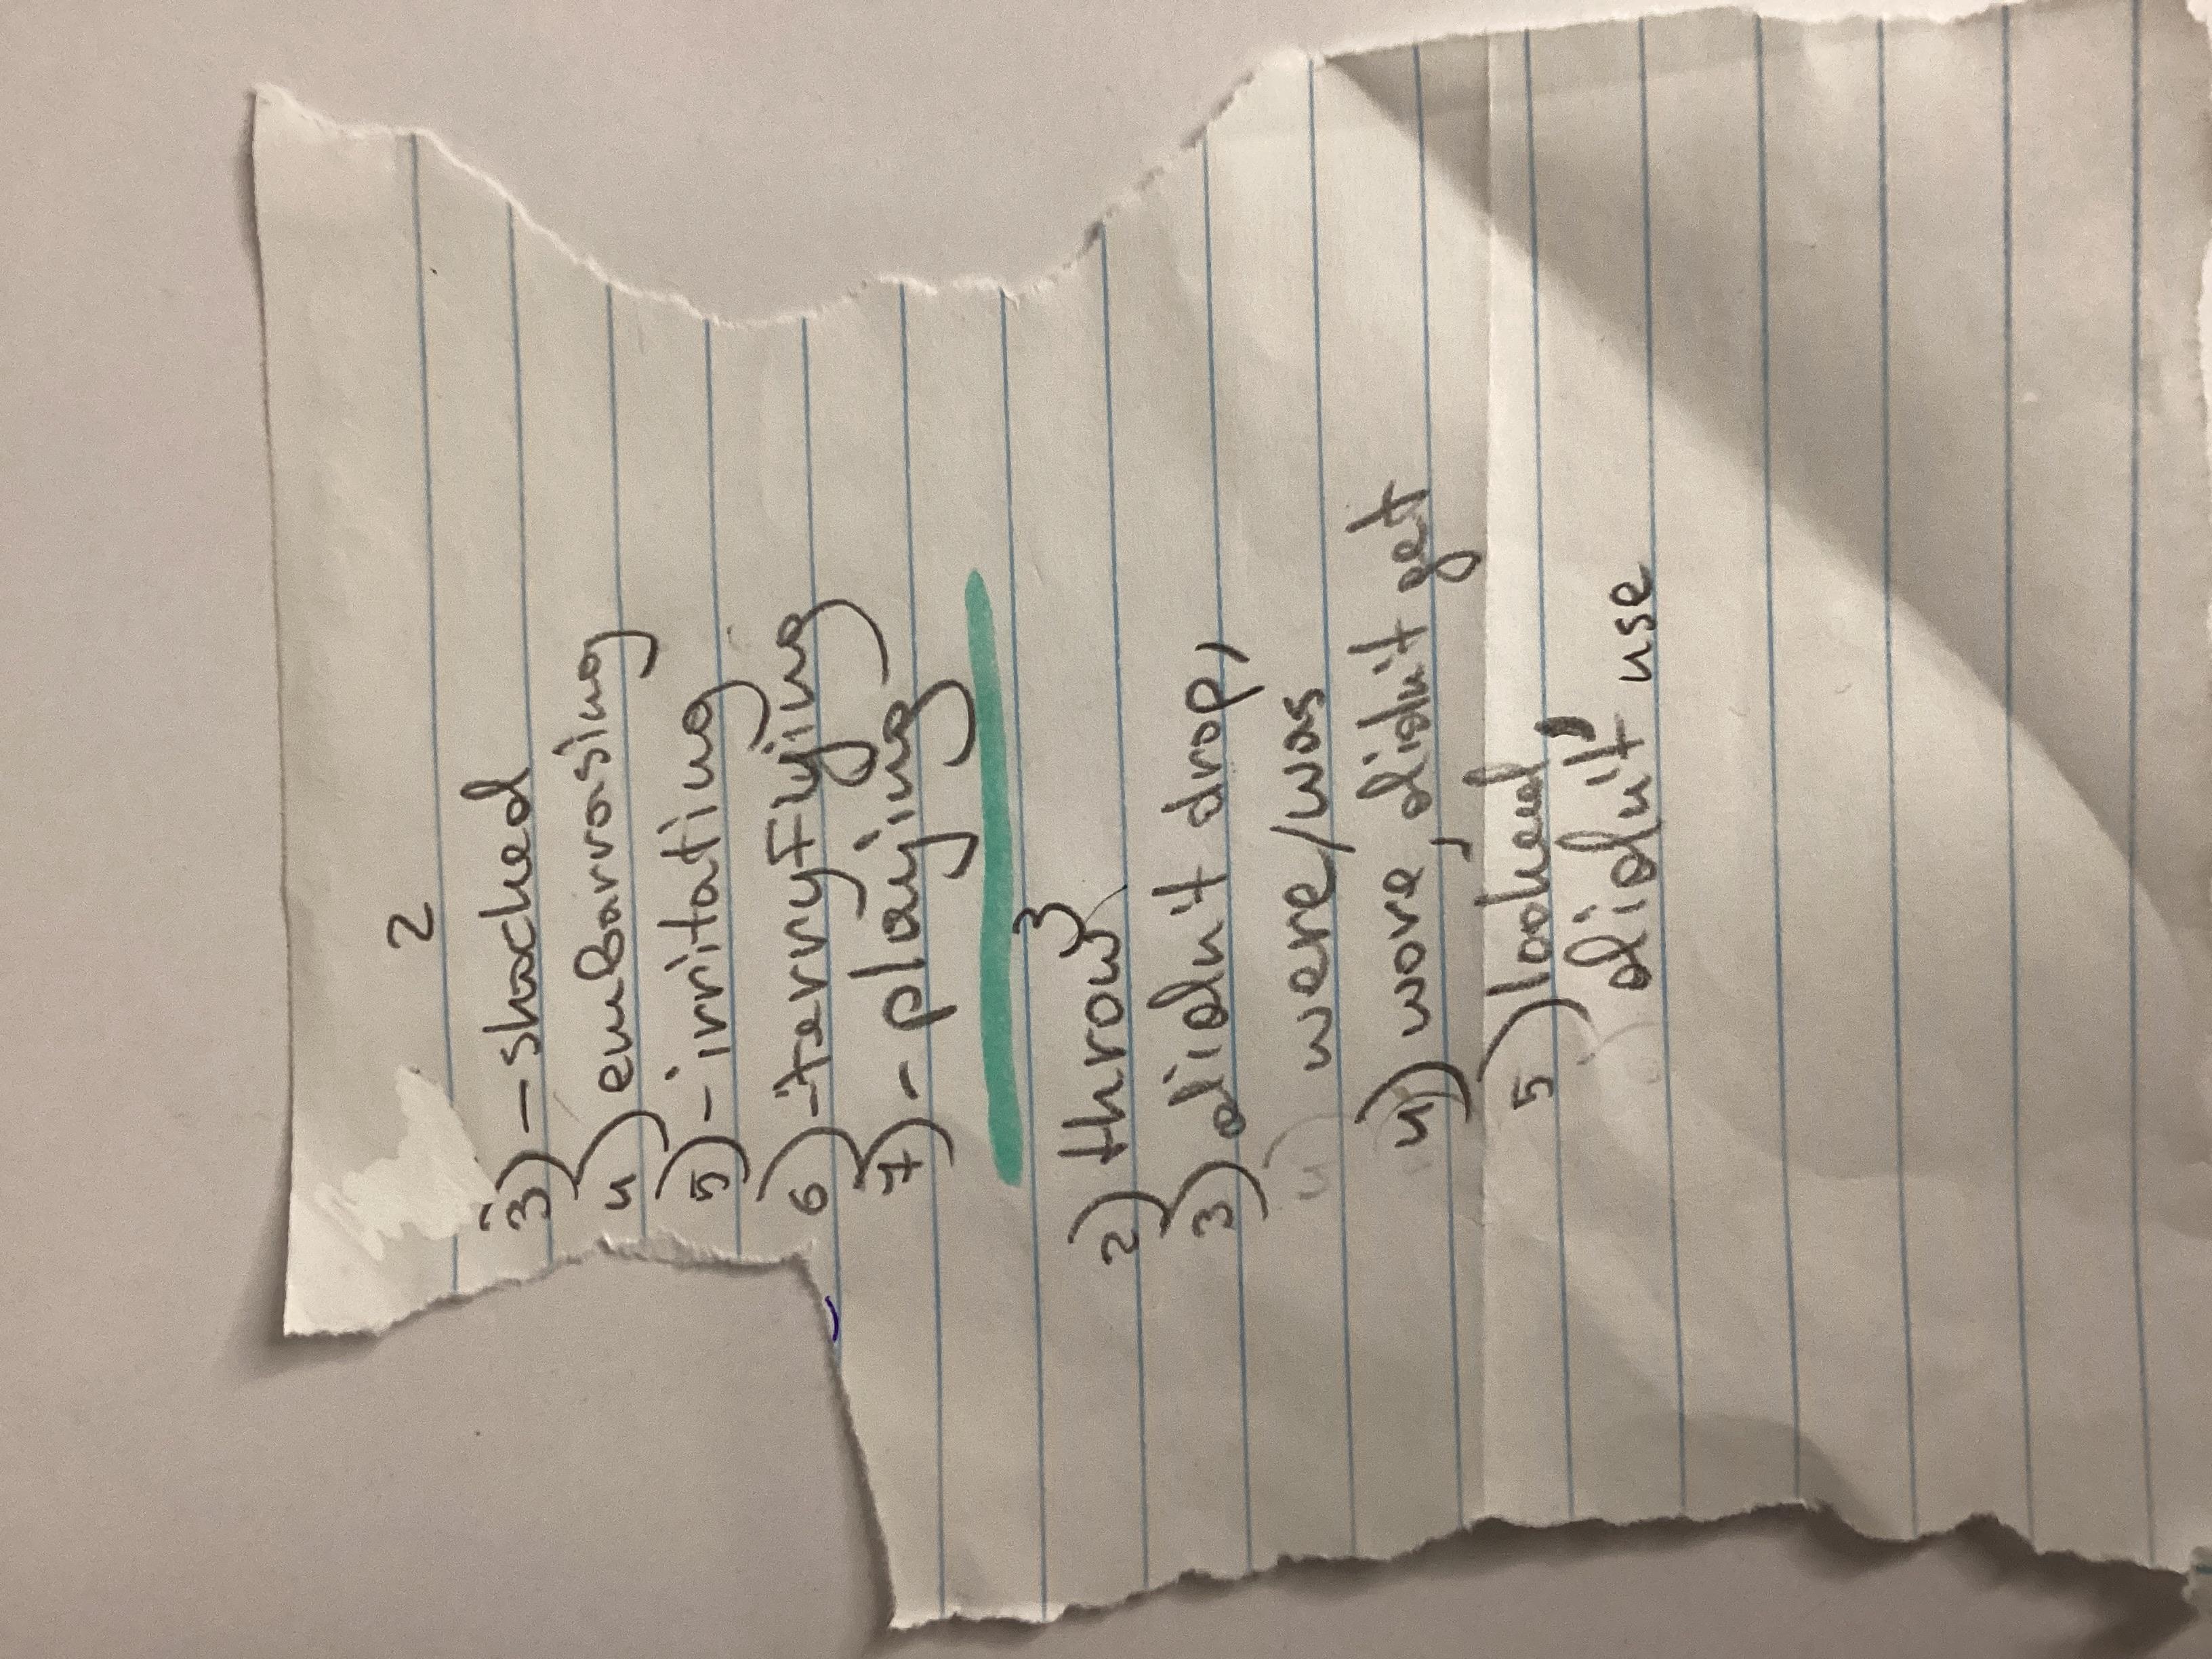 2
3) - shocked
4) embarrasing
5) - irritating
6) - terryFlying
7) - playing
3
2) throw
3) didn't drop,
were/was
4) wore, didn't get
5) looked,
didn't use